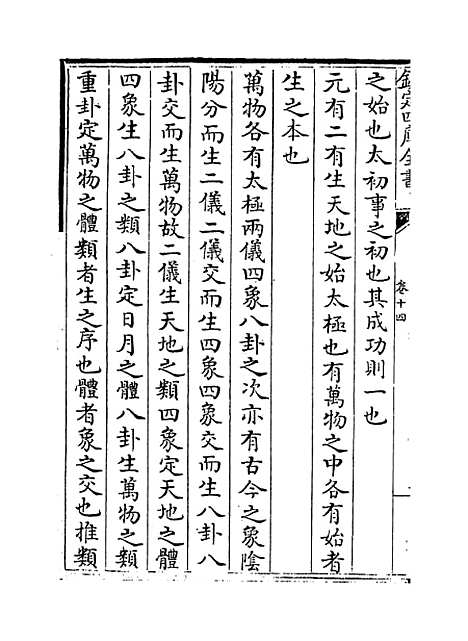 欽定四庫全書
卷十四
之始也太初事之初也其成功則一也
元有二有生天地之始太極也有萬物之中各有始者
生之本也
萬物各有太極兩儀四象八卦之次亦有古今之象陰
陽分而生二儀二儀交而生四象四象交而生八卦八
卦交而生萬物故二儀生天地之類四象定天地之體
四象生八卦之類八卦定日月之體八卦生萬物之類
重卦定萬物之體類者生之序也體者象之交也推類